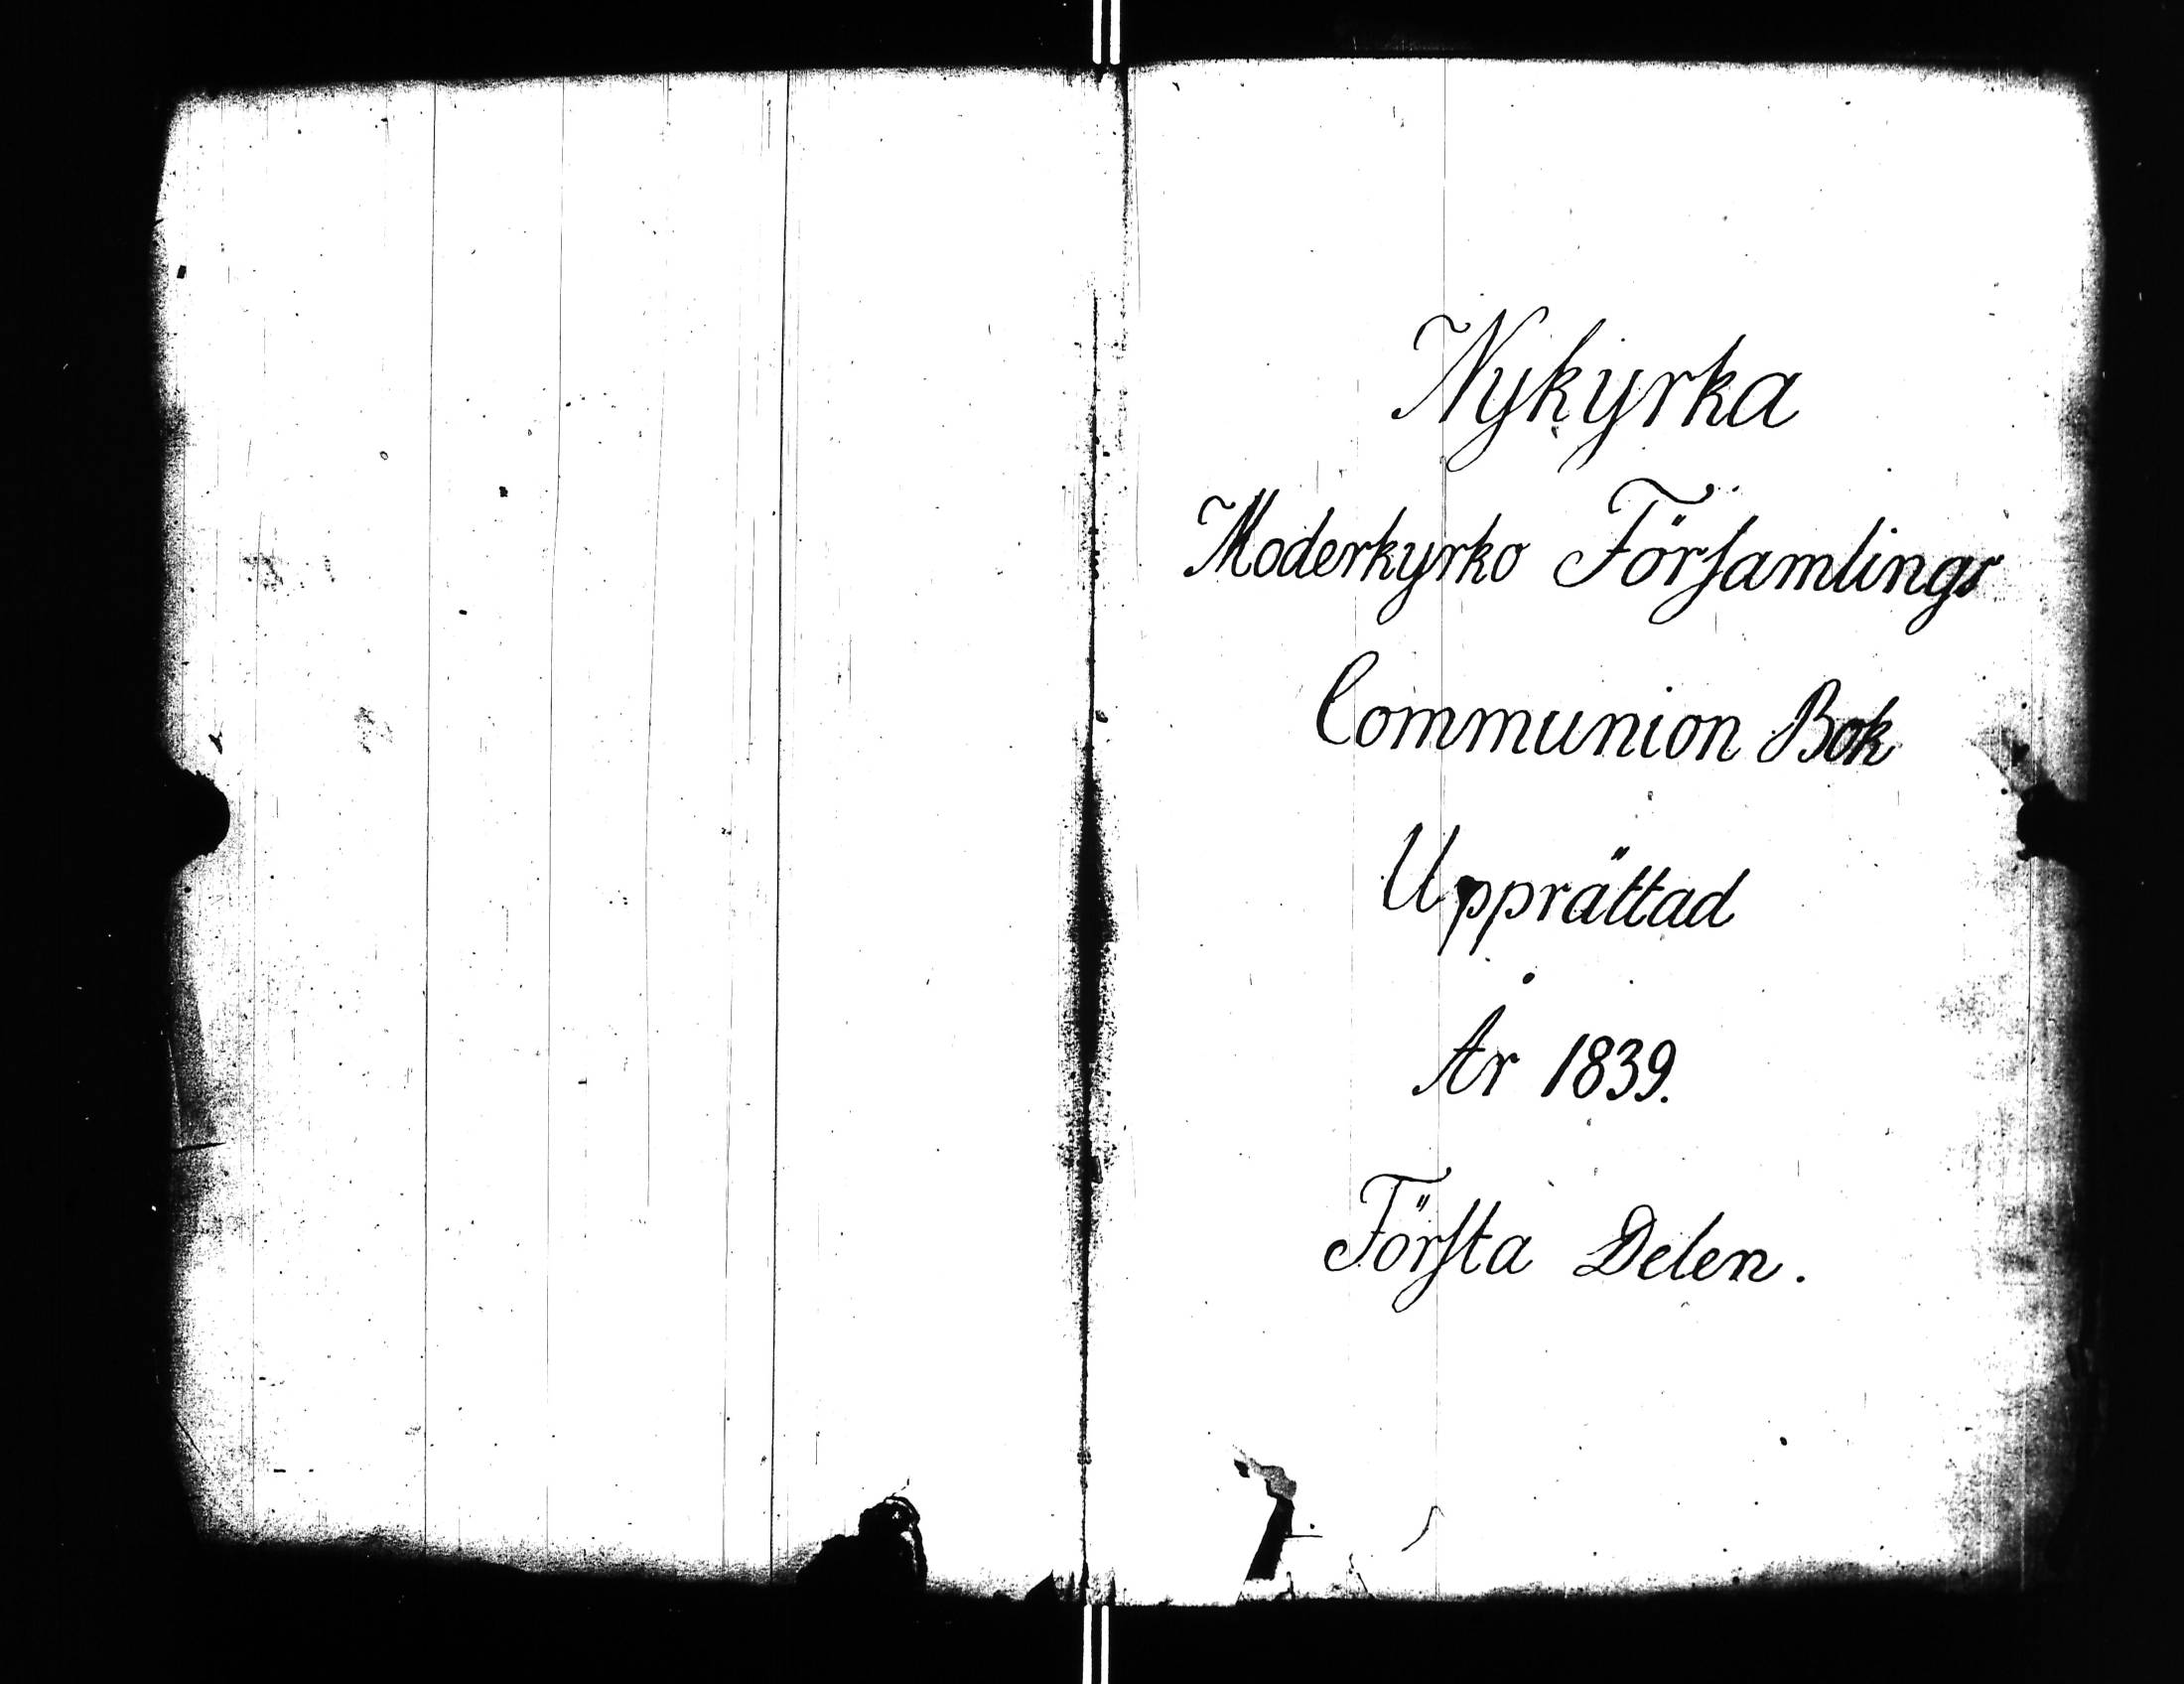 Nykyrka
Moderkyrko Församlings
Communion Bok
Upprättad
År 1839.
Första Delen.